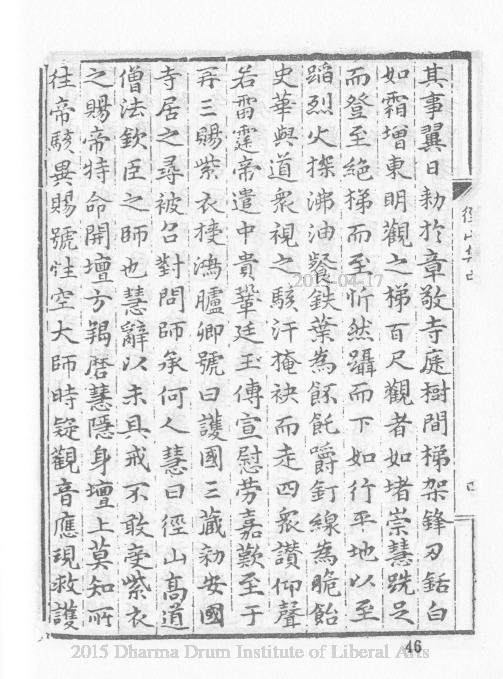 其事翼日勑於章敬寺庭樹間梯架鋒刃銛白
如霜增東明觀之梯百尺觀者如堵崇慧跣足
而登至絶梯而至忻然躡而下如行平地以至
蹈烈火探沸油餐鉄葉為飥嚼釘線為脆飴
史華與道衆視之駭汗掩袂而走四衆讃仰聲
若雷霆帝遣中貴鞏廷玉傳宣慰劳嘉歎至于
再三賜紫衣授鴻臚卿號曰護國三蔵勑安國
寺居之尋被召對問師承何人慧曰徑山髙道
僧法欽臣之師也慧辭以未具戒不敢受紫衣
之賜帝特命開壇方羯磨慧隱身壇上莫知所
往帝駭異賜號性空大師時疑觀音應現救護
徑山集
46
2015 Dharma Drum Institute of Liberal Arts